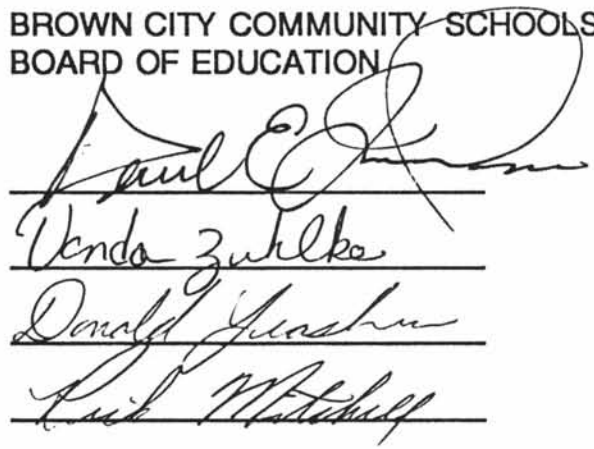 BROWN CITY COMMUNITY SCHOOLS
BOARD OF EDUCATION
E
Vanda Zuhlke
Donald
Rick Mitchell